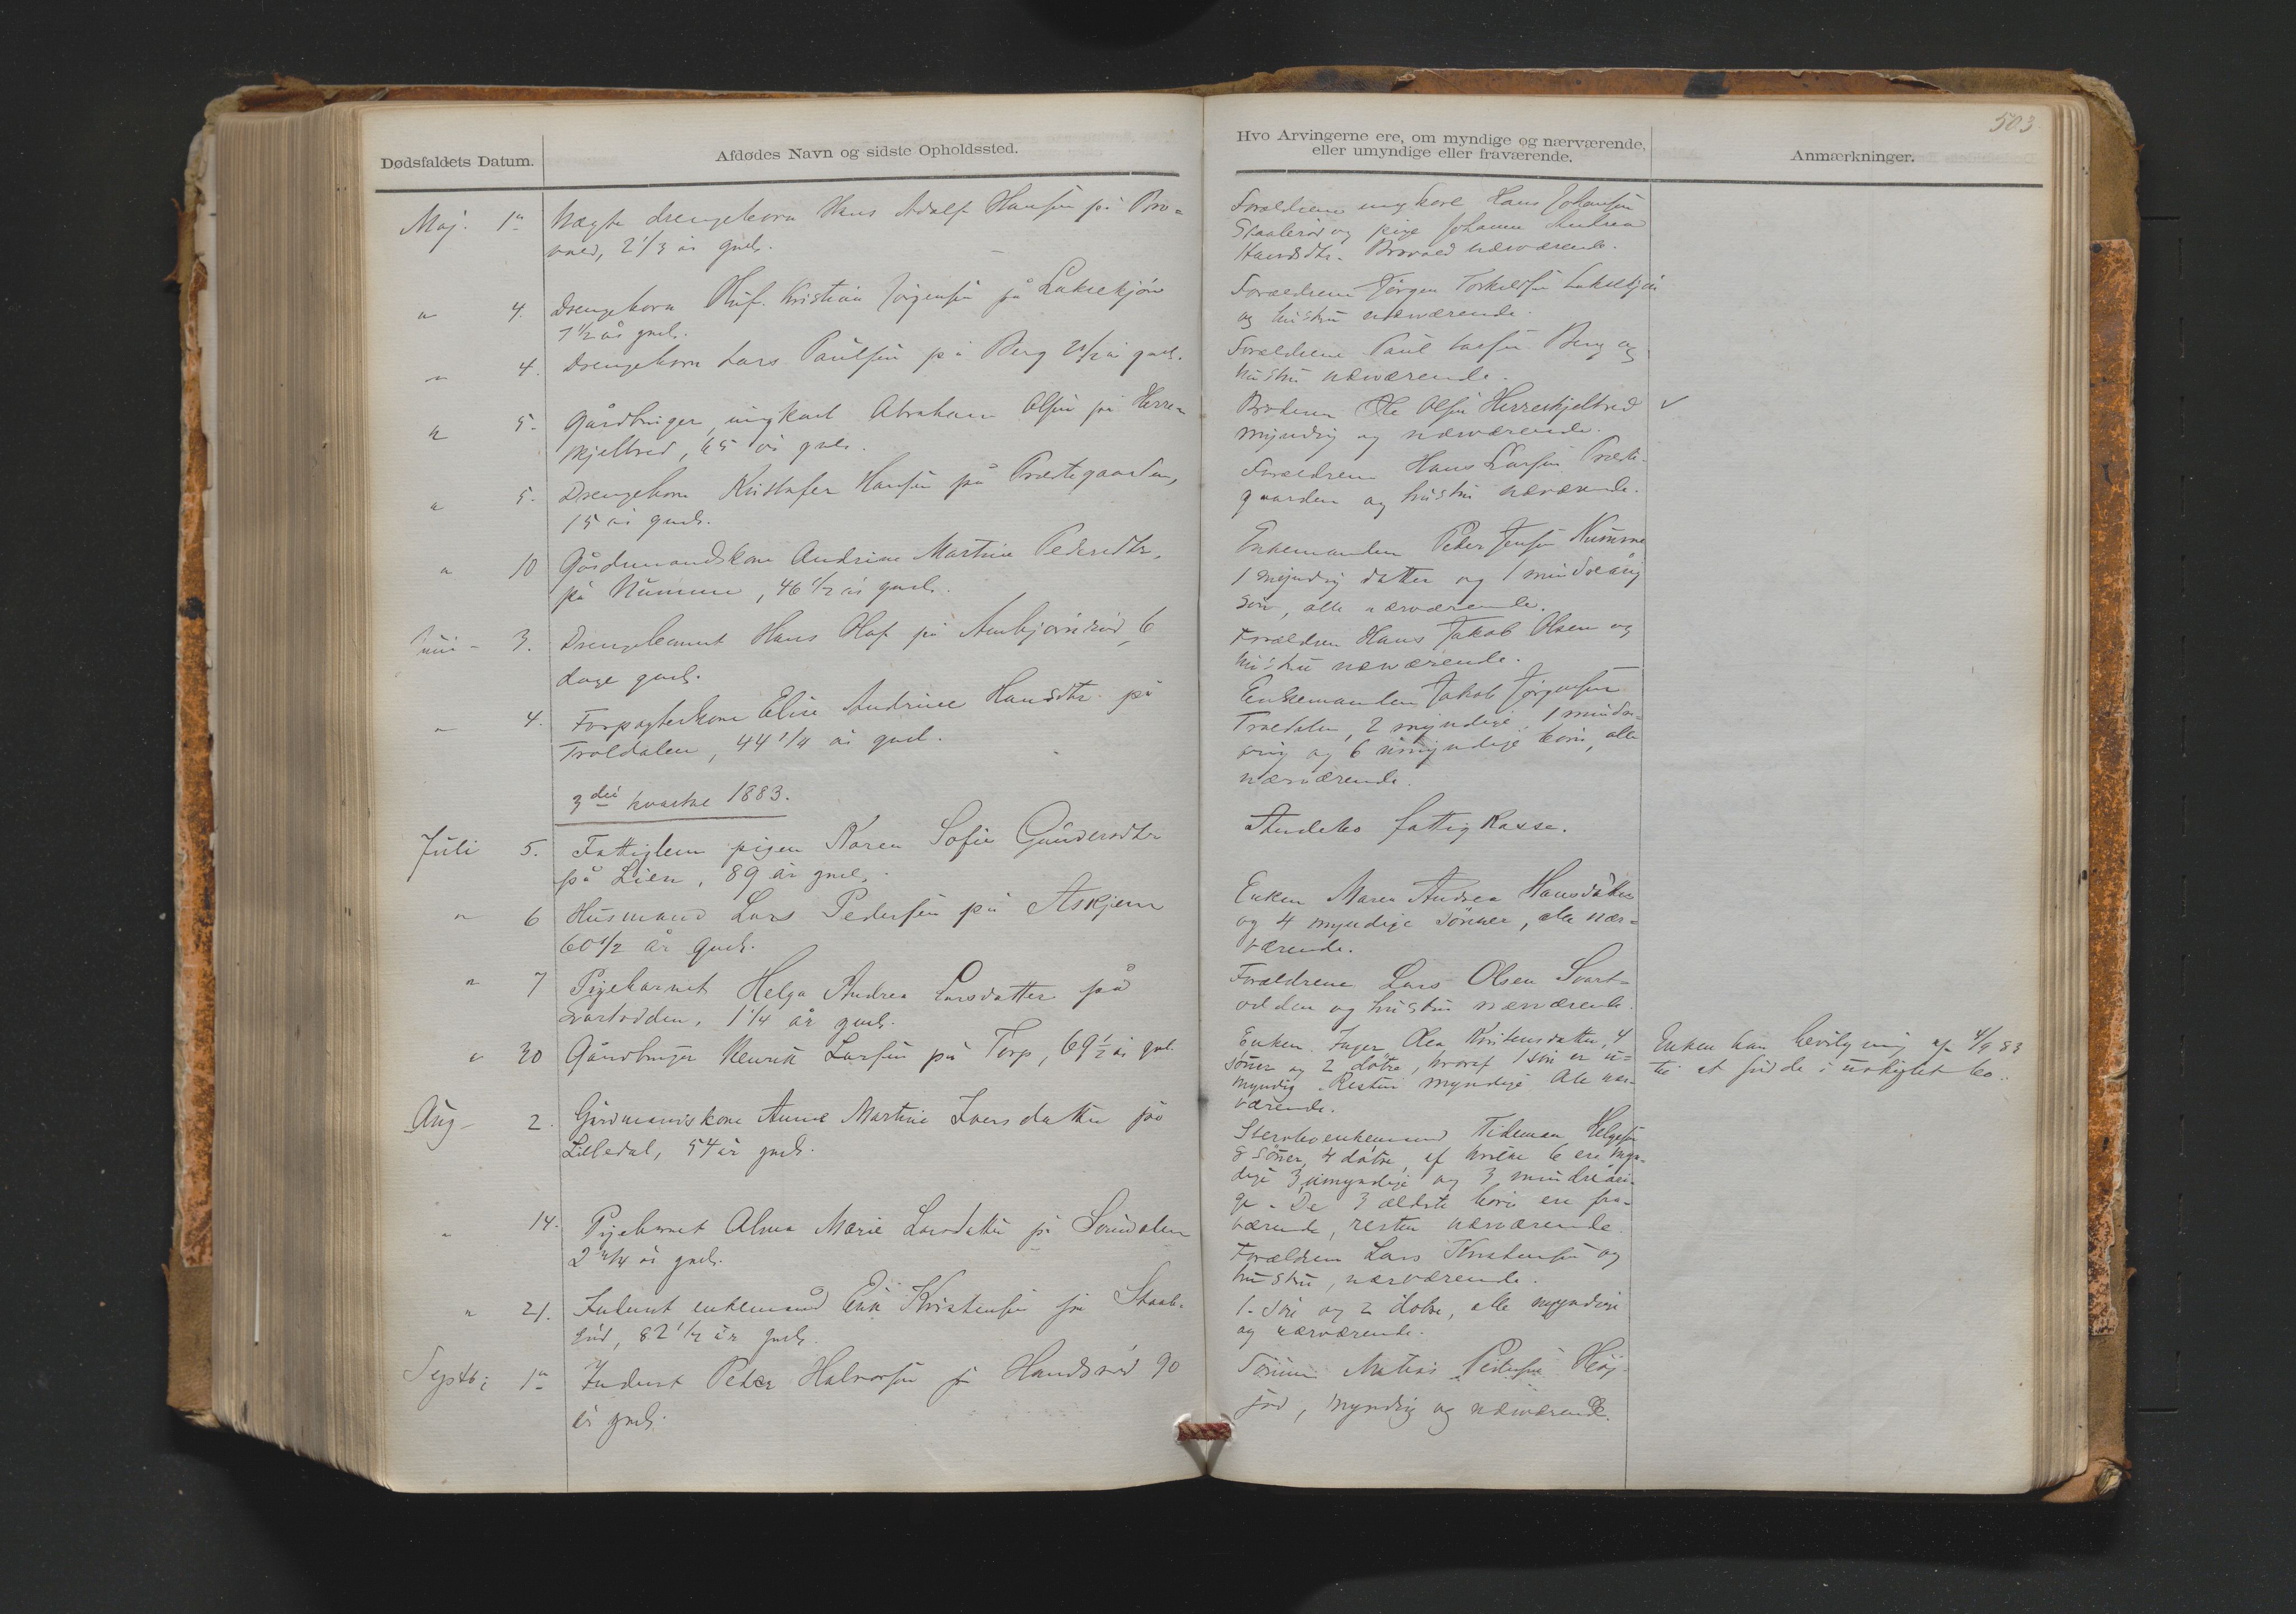 503
Dødsfaldets Datum.
Afdødes Navn og sidste Opholdssted.
Hvo Arvingerne ere, om myndige og nærværende,
eller umyndige eller fraværende.
Anmærkninger.
Maj. 1ste Uægte drengebarn Hans Adolf Hansen på Bro-
vald, 2 1/3 år gml.
Forældrene ungkarl Hans Johansen
og pige Johanne Andrea
Hansdtr. nærværende.
" 4. Drengebarn Kristian Jörgensen på Laksekjön
1 1/2 år gml.
Forældrene Jörgen Torkelsen Laksekjön
og hustru nærværende.
" 4. Drengebarn Lars Paulsen på Berg 2 1/2 år gml.
Forældrene Paul Larsen Berg og
hustru nærværende.
" 5. Gårdbruger, ungkarl Abraham Olsen på Herre-
skjelbred, 65 år gml.
Broderen Ole Olsen Herreskjelbred
myndig og nærværende.
" 5. Drengebarn Kristofer Hansen på Prestegaarden,
15 år gml.
Forældrene Hans Larsen Preste-
gaarden og hustru nærværende.
" 10 Gårdmandskone Andrine Martine Pedersdtr.
på Numme, 46 1/2 år gml.
Enkemanden Peder Jensen Numme
1 myndig datter og 1 mindreårig
sön, alle nærværende.
Juni - 3. Drengebarnet Hans Olaf på 6
dage gml.
Forældrene Hans Jakob Olsen og
hustru nærværende.
" 4. Forpagterkone Elise Andrine Hansdtr. på
Troldalen, 44 1/4 år gml.
Enkemanden Jakob Jörgensen
Troldalen, 2 myndige, 1 mindre-
årig og 6 umyndige börn, alle
nærværende.
3die kvartal 1883.
Juli 5. Fattiglem pigen Karen Sofie Gundersdtr
på Lien, 89 år gml.
Andebo fattigkasse.
" 6 Husmand Lars Pedersen på Askjem
60 1/2 år gml.
Enken Maren Andrea Hansdatter
og 4 myndige sönner, alle nær-
værende.
" 7 Pigebarnet Helga Andrea Larsdatter på
Svartodden, 1 1/4 år gml.
Forældrene Lars Olsen Svart-
odden og hustru nærværende.
" 30 Gårdbruger Henrik Larsen på Torp, 69 1/2 år gml.
Enken Inger Olea Kristensdatter, 4
sönner og 2 dötre, hvoraf 1 sön er u-
myndig. Resten myndige. Alle nær-
værende.
Enken har bevilgning af 4/9 83
til at sidde i uskiftet bo.
Aug - 2. Gårdmandskone Anne Martine Iversdatter på
Lilledal, 54 år gml.
Stervboenkemand Tideman Helgesen
8 sönner, 4 dötre, af hvilke 6 ere myn-
dige 3 umyndige og 3 mindreåri-
ge. De 3 ældste börn ere fra-
værende, resten nærværende.
" 14. Pigebarnet Alma Marie Larsdatter på
2 3/4 år gml.
Forældrene Lars Kristensen og
hustru, nærværende.
" 21. Inderst enkemand Erik Kristensen på
82 1/2 år gml.
1 sön og 2 dötre, alle myndige
og nærværende.
Septbr 1ste Inderst Peder Halvorsen på 90
år gml.
Sönnen Matias Pedersen
myndig og nærværende.